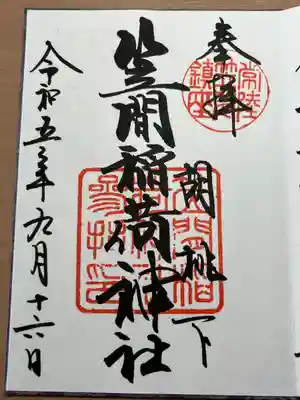 奉拝
常陸
笠間
鎮座
胡桃下
笠間稲荷神社
令和五年九月十六日